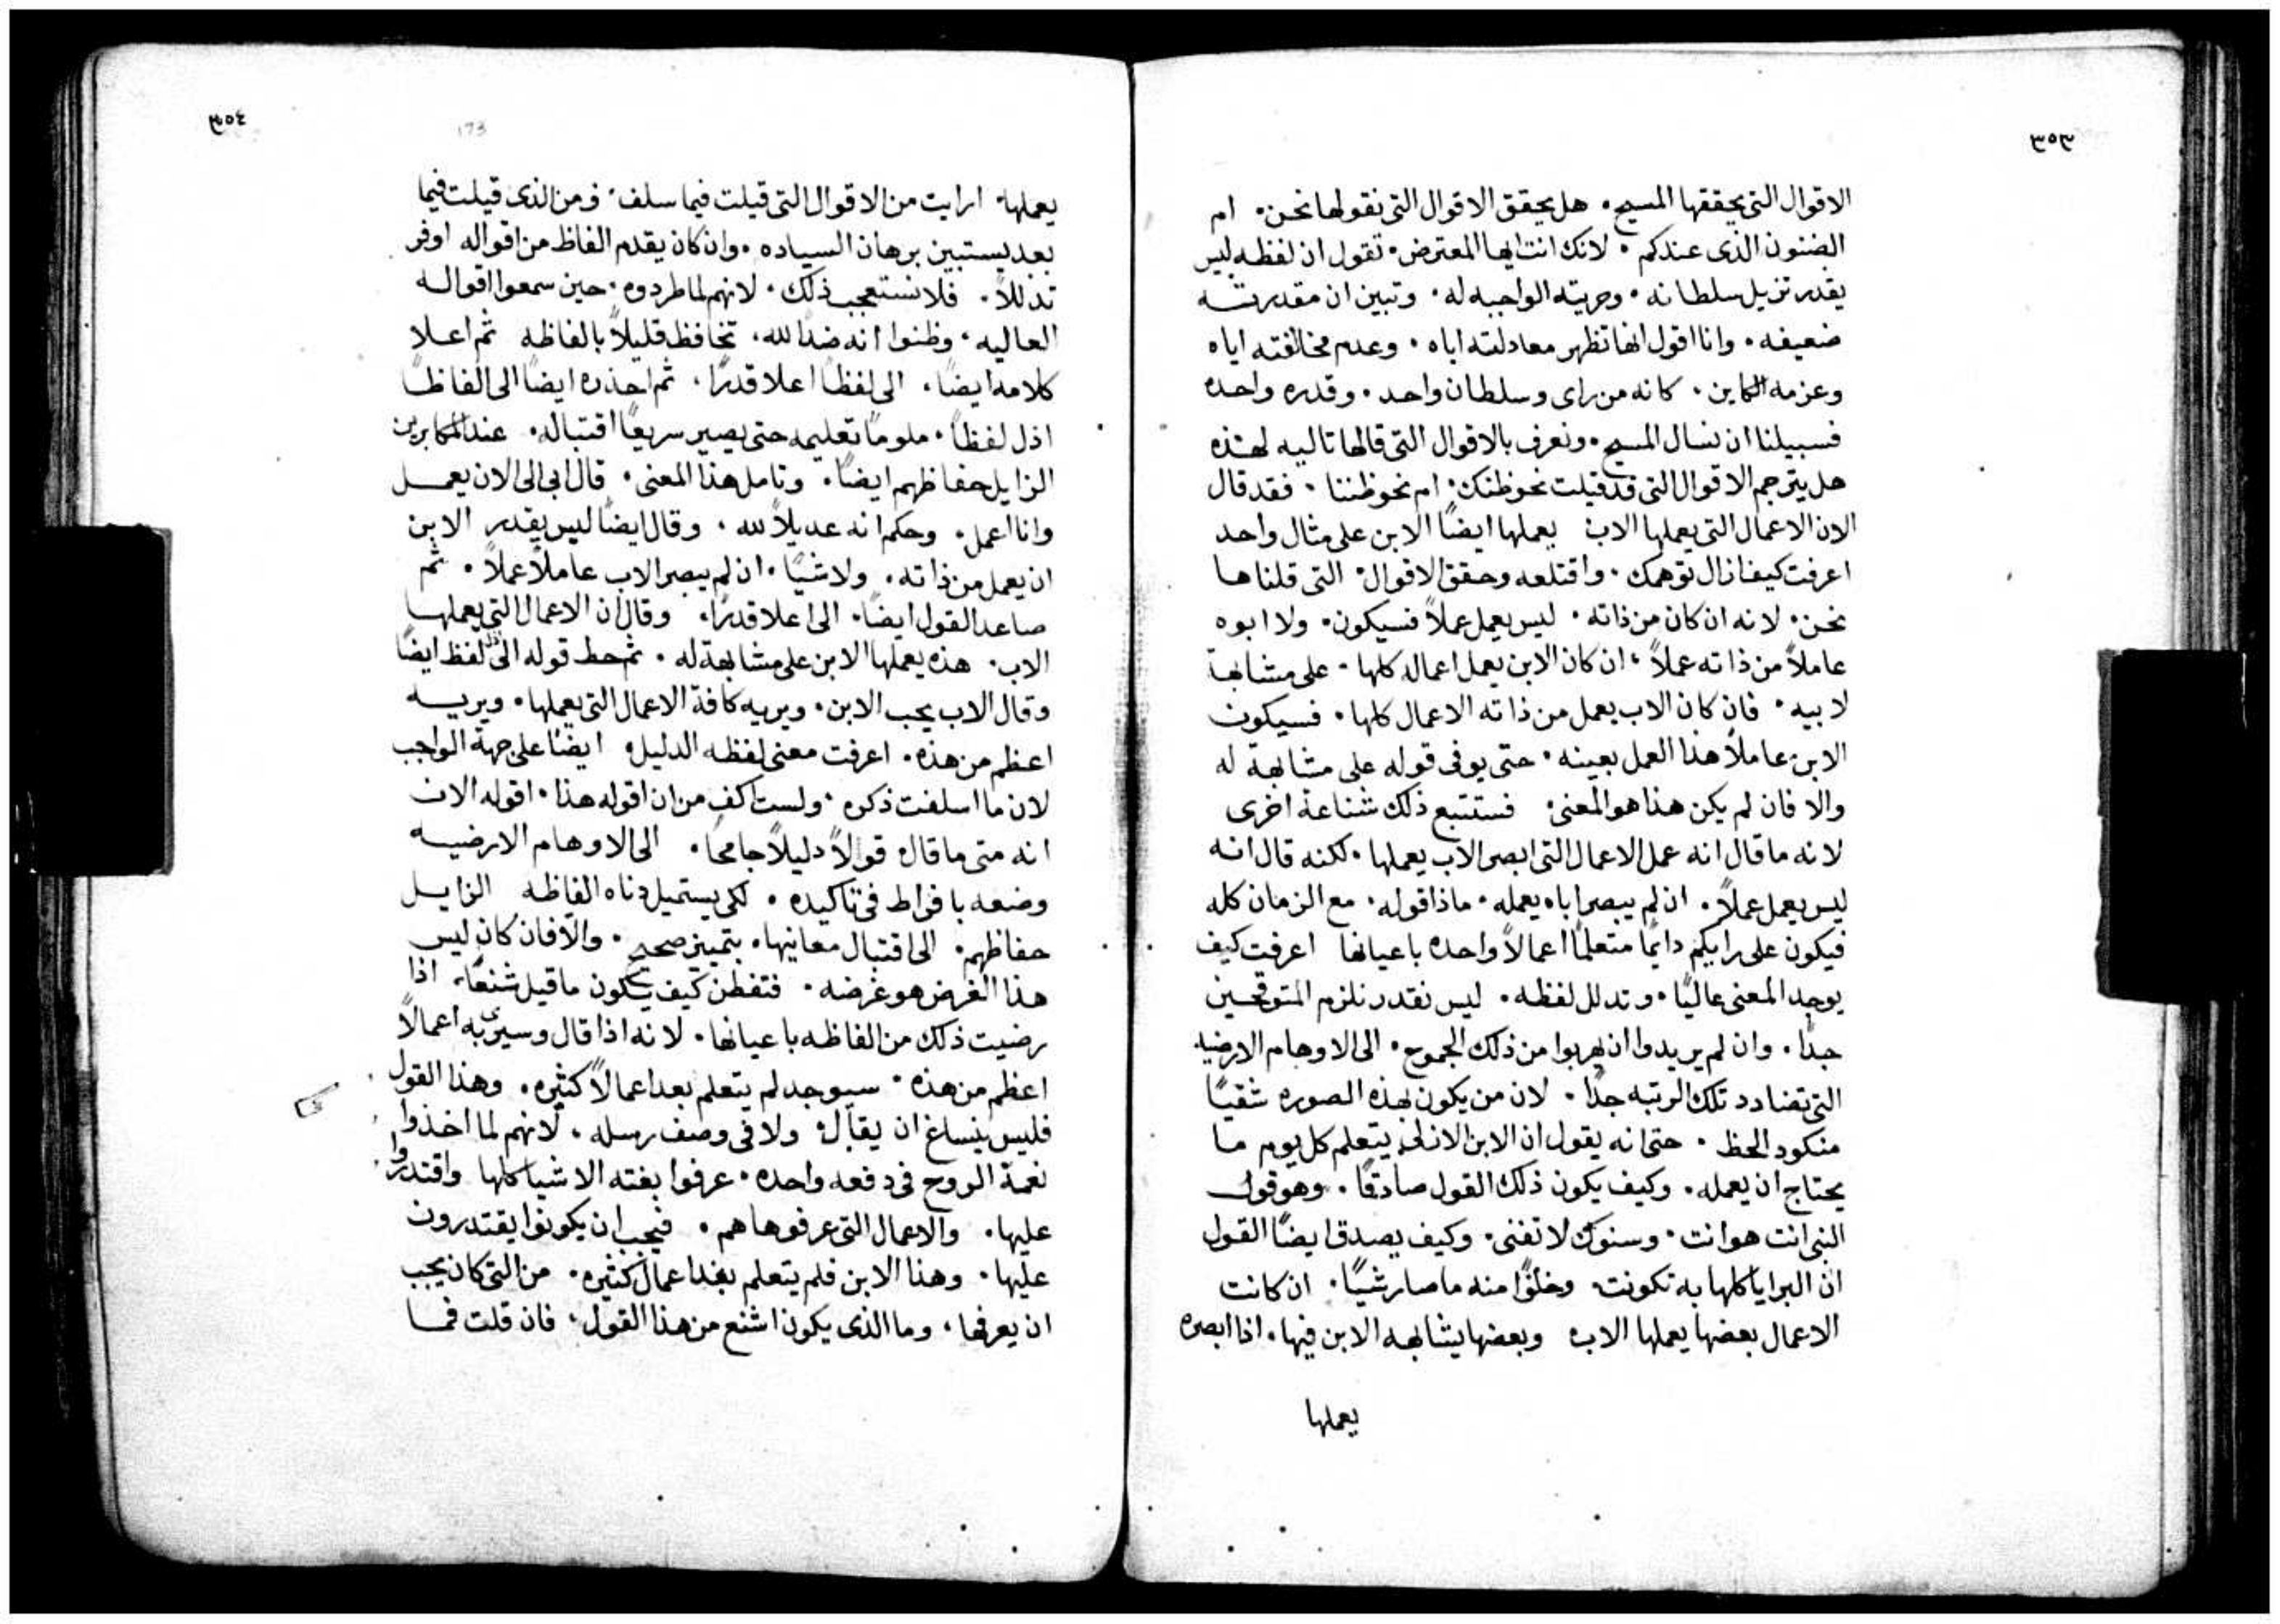 ٣٥٣
الاقوال التى يحققها المسيح. هل يحقق الاقوال التى نقولها نحن. ام
الضنون الذى عندكم. لانك انت ايها المعترض. تقول ان لفظه ليس
يقدر تزيل سلطانه. وحريته الواجبه له. وتبين ان مقدرته
ضعيفه. وانا اقول انها تظهر معادلته اباه. وعدم مخالفته اياه
وعزمه الكاين. كانه من راى وسلطان واحد. وقدره واحده
فسبيلنا ان نسال المسيح. ونعرف بالاقوال التى قالها تاليه لهذه
هل يترجم الاقوال التى قد قيلت نحو ظنك. ام نحو ظننا. فقد قال
الان الاعمال التى يعملها الاب يعملها ايضًا الابن على مثال واحد
اعرفت كيف ازال توهمك. واقتلعه وحقق الاقوال. التى قلناها
نحن. لانه ان كان من ذاته. ليس يعمل عملاً فسيكون. ولا ابوه
عاملاً من ذاته عملاً، ان كان الابن يعمل اعماله كلها. على مشابهة
لابيه. فان كان الاب يعمل من ذاته الاعمال كلها. فسيكون
الابن عاملاً هذا العمل بعينه. حتى يوفى قوله على مشابهة له
والا فان لم يكن هذا هو المعنى. فستتبع ذلك شناعة اخرى
لانه ما قال انه عمل الاعمال التى ابصر الاب يعملها. لكنه قال انه
ليس يعمل عملاً. ان لم يبصر اباه يعمله. ماذا قوله. مع الزمان كله
فيكون على رايكم دايمًا متعلمًا اعمالاً واحده باعيانها اعرفت كيف
يوجد المعنى عاليًا. وتدلل لفظه. ليس نقدر نلزم المتوقحين
جدًا. وان لم يريدوا ان يهربوا من ذلك الجموح. الى الاوهام الارضيه
التى تضادد تلك الرتبه جدًا. لان من يكون بهذه الصوره شقيًا
منكود الحظ. حتى انه يقول ان الابن الازلى يتعلم كل يوم ما
يحتاج ان يعمله. وكيف يكون ذلك القول صادقًا. وهو قول
النبى انت هو انت. وسنوك لا تفنى. وكيف يصدق ايضًا القول
ان البرايا كلها به تكونت. وخلوًا منه ما صار شيًا. ان كانت
الاعمال بعضها يعملها الاب وبعضها يشابهه الابن فيها. اذا ابصره
يعملها
٣٥٤
173
يعملها. ارايت من الاقوال التى قيلت فيما سلف. ومن الذى قيلت فيما
بعد يستبين برهان السياده. وان كان يقدم الفاظ من اقواله اوفر
تذللاً. فلا تستعجب ذلك. لانهم لما طردوه. حين سمعوا اقواله
العاليه. وظنوا انه ضدًا لله. تخافظ قليلاً بالفاظه ثم اعلا
كلامه ايضًا. الى لفظًا اعلا قدرًا. ثم احذره ايضًا الى الفاظًا
اذل لفظًا. ملومًا تعليمه حتى يصير سريعًا اقتباله. عند المكابرين
الزايل حفاظهم ايضًا. وتامل هذا المعنى. قال ابى الى الان يعمل
وانا اعمل. وحكم انه عديلاً لله. وقال ايضًا ليس يقدر الابن
ان يعمل من ذاته. ولا شيًا. ان لم يبصر الاب عاملاً عملاً. ثم
صاعد القول ايضًا. الى اعلا قدرًا. وقال ان الاعمال التى يعملها
الاب. هذه يعملها الابن على مشابهة له. ثم حط قوله الى لفظ ايضًا
وقال الاب يحب الابن. ويريه كافة الاعمال التى يعملها. ويريه
اعظم من هذه. اعرفت معنى لفظه الدليل. ايضًا على جهة الواجب
لان ما اسلفت ذكره. ولست اكف من ان اقوله هذا. اقوله الان
انه متى ما قال قولاً دليلاً جامحًا. الى الاوهام الارضيه
وضعه بافراط فى تاكيده. لكى يستميل دناه الفاظه الزايل
حفاظهم. الى اقتبال معانيها. بتمييز صحيح. والا فان كان ليس
هذا الغرض هو غرضه. فتفطن كيف يكون ما قيل شنعًا. اذا
رضيت ذلك من الفاظه باعيانها. لانه اذا قال وسيريه اعمالاً
اعظم من هذه. سيوجد لم يتعلم بعد اعمالاً كثيره. وهذا القول
فليس ينساغ ان يقال. ولا فى وصف رسله. لانهم لما اخذوا
نعمة الروح فى دفعه واحده. عرفوا بغته الاشيا كلها واقتدروا
عليها. والاعمال التى عرفوها هم. فيجب ان يكونوا يقتدرون
عليها. وهذا الابن فلم يتعلم بعد اعمال كثيره. من التى كان يجب
ان يعرفها. وما الذى يكون اشنع من هذا القول. فان قلت فما